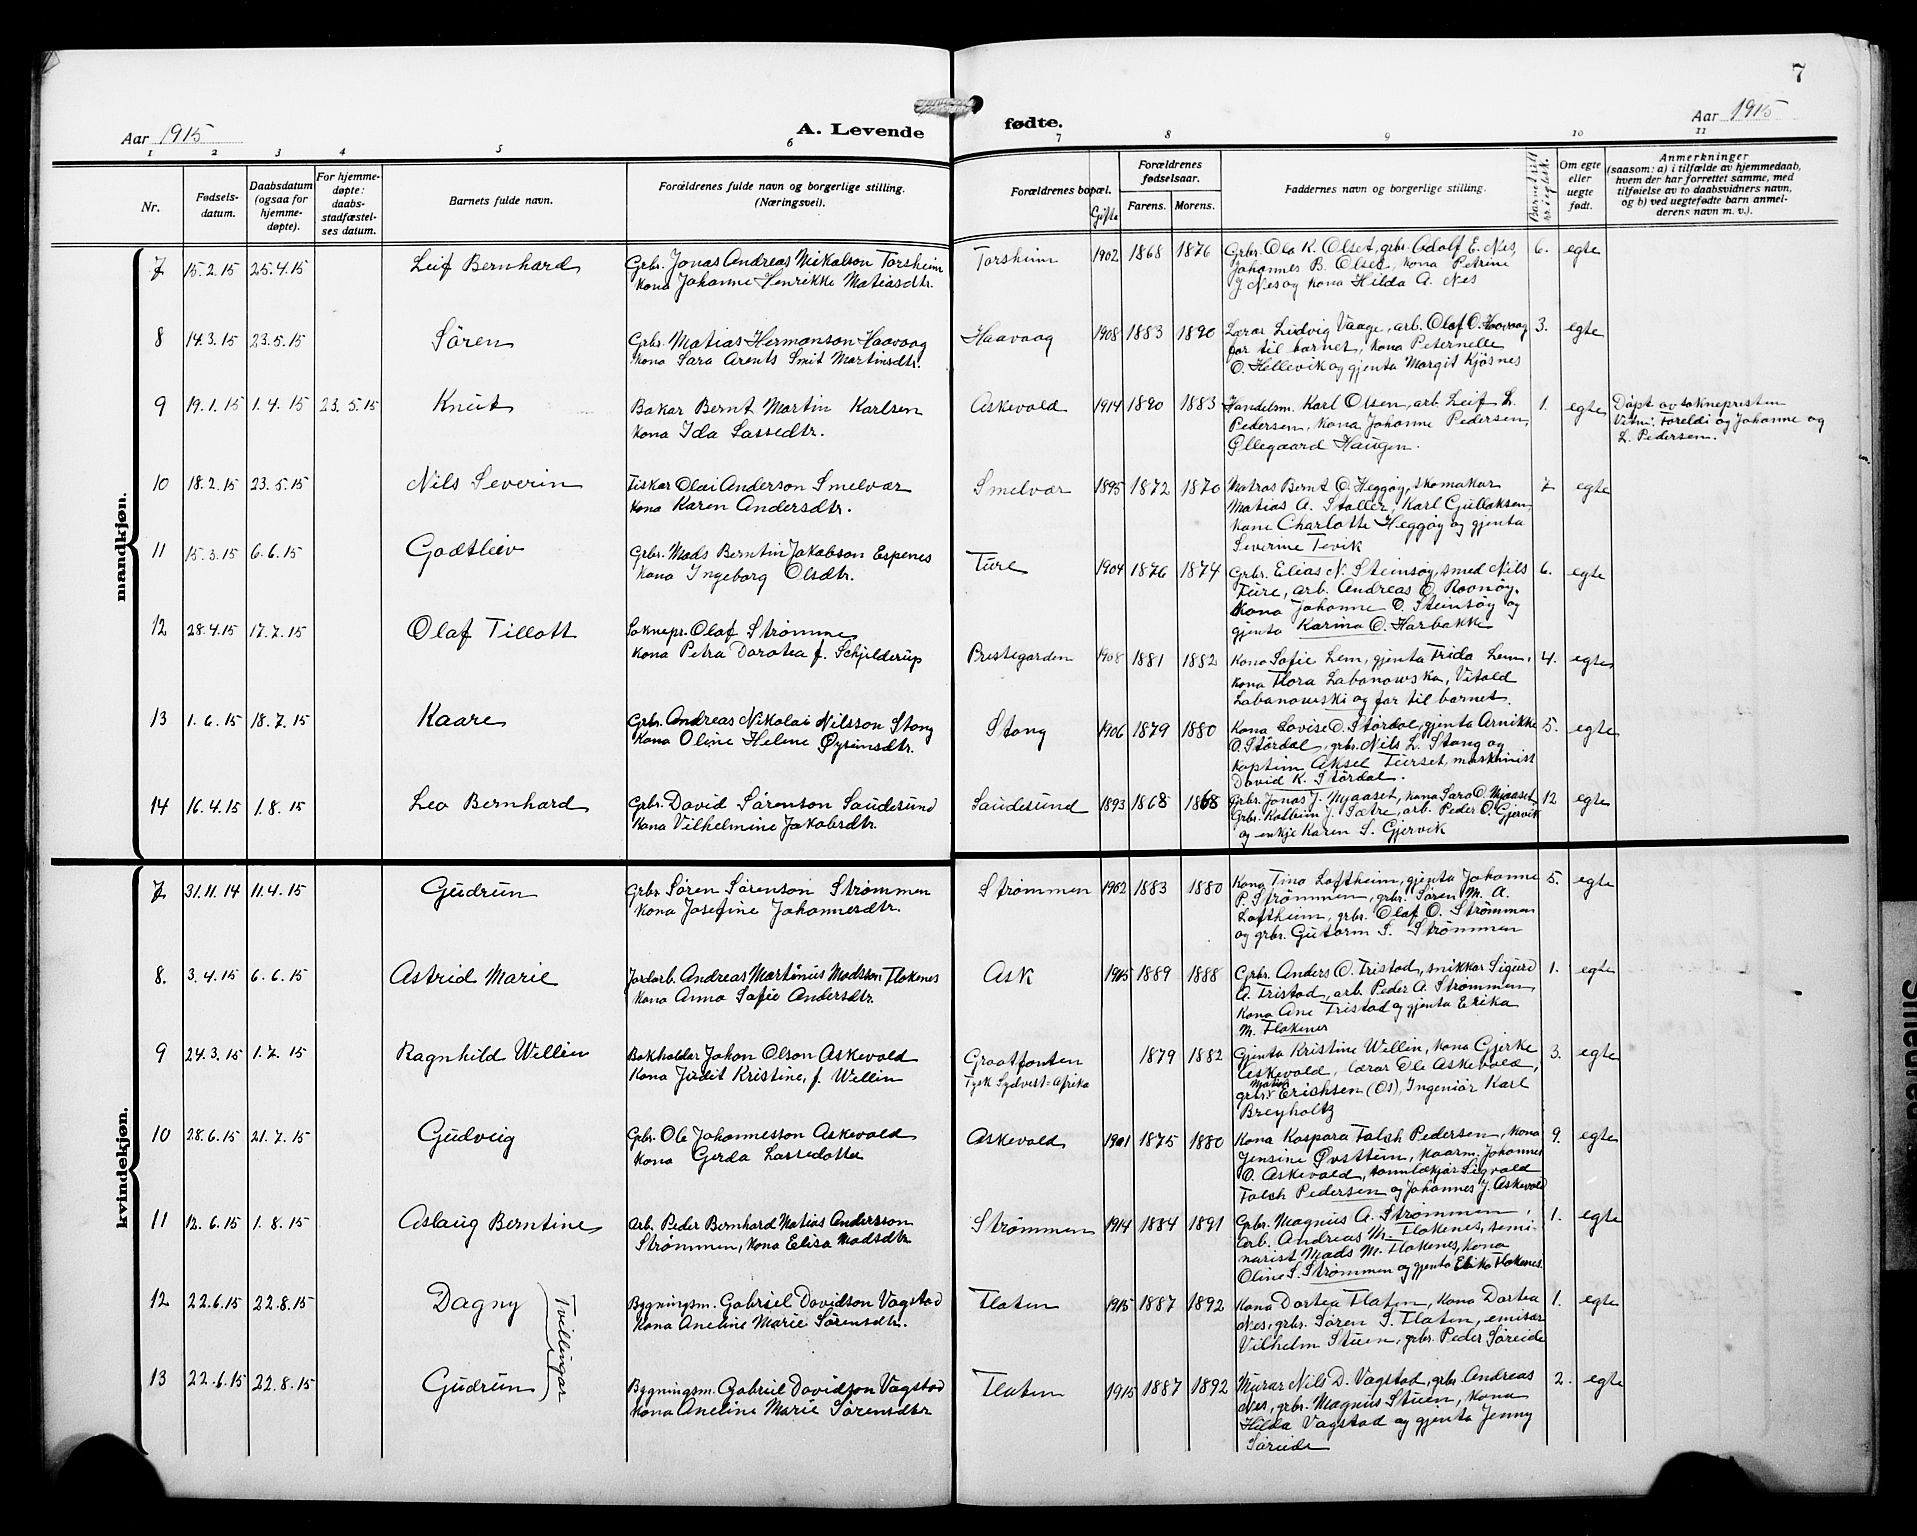 7
Aar 1915
A. Levende fødte.
Aar 1915
1 2 3 4 5 6 7 8 9 10 11
Nr.
Fødsels-
datum.
Daabsdatum
(ogsaa for
hjemme-
døpte).
For hjemme-
døpte:
daabs-
stadfæstel-
ses datum.
Barnets fulde navn.
Forældrenes fulde navn og borgerlige stilling.
(Næringsvei).
Forældrenes bopæl.
Gifte
Forældrenes
fødselsaar.
Farens. Morens.
Faddernes navn og borgerlige stilling.
Om egte
eller
uegte
født.
Anmerkninger
(saasom: a) i tilfælde av hjemmedaab,
hvem der har forrettet samme, med
tilføielse av to daabsvidners navn,
og b) ved uegtefødte barn anmel-
derens navn m. v.).
mandkjøn.
7 15.2.15 25.4.15 Leif Bernhard
Grbr. Jonas Andreas Mikalson Torsheim
Kona Johanne Henrikke Matiasdtr.
Torsheim 1902 1868 1876
Grbr. Ola K. Olset, grbr. Adolf E. Nes,
Johannes B. Olset, kona Petrine
J. Nes og kona Hilda A. Nes
6. egte
8 14.3.15 23.5.15 Søren
Grbr. Matias Hermanson Haavaag
Kona Sara Arents Smit Martinsdtr.
Haavaag 1908 1883 1890
Lærar Ludvig Vaage, arb. Olaf O. Haavaag
far til barnet, kona Peternelle
O. Hellevik og gjenta Margit Kjøsnes
3. egte
9 19.1.15 1.4.15 23.5.15 Knut
Bakar Bernt Martin Karlsen
Kona Ida Lassedtr.
Askevold 1914 1890 1883
Handelsm. Karl Olsen, arb. Leif L.
Pedersen, kona Johanne Pedersen,
Øllegaard Haugen.
1. egte
Døpt av soknepresten
Vitni: Foreldi og Johanne og
L. Pedersen.
10 18.2.15 23.5.15 Nils Severin
Fiskar Olai Anderson Smelvær
Kona Karen Andersdtr.
Smelvær 1895 1872 1870
Matros Bernt O. Heggøy, skomakar
Matias A. Staller, Karl Gullaksen,
Kona Charlotte Heggøy og gjenta
Severine Tevik
7 egte
11 15.3.15 6.6.15 Godtleiv
Grbr. Mads Berntin Jakobson Espenes
Kona Ingeborg Olsdtr.
Fure 1904 1876 1874
Grbr. Elias N. Steinsøy, smed Nils
Fure, arb. Andreas O.
Kona Johanne O. Steinsøy og
gjenta Karina O. Harbakke
6. egte
12 28.4.15 17.7.15 Olaf Tillott
Soknepr. Olaf Strømme
Kona Petra Dorotea f. Schjelderup
Prestegarden 1908 1881 1882
Kona Sofie Lem, gjenta Frida Lem,
kona Flora Labanowska, Vitold
Labanowski og far til barnet.
4. egte
13 1.6.15 18.7.15 Kaare
Grbr. Andreas Nikolai Nilsson Stong
Kona Oline Helene Øyrinsdtr.
Stong 1906 1879 1880
Kona Lovise O. Størdal, gjenta Arnikke
O. Størdal, grbr. Nils L. Stong og
Kaptein Aksel Furset, maskinist
David K. Størdal.
5. egte
14 16.4.15 1.8.15 Leo Bernhard
Grbr. David Sørenson Saudesund
Kona Vilhelmine Jakobsdtr.
Saudesund 1893 1868 1868
Grbr. Jonas J. Myaaset, kona Sara O. Myaaset
Grbr. Kolbein J. Sætre, arb. Peder O. Gjervik
og enkje Karen S. Gjervik
12 egte
kvindekjøn.
7 31.11.14 11.4.15 Gudrun
Grbr Søren Sørenson Strømmen
Kona Josefine Johannesdtr.
Strømmen 1902 1883 1880
Kona Tina Loftheim, gjenta Johanne
P. Strømmen, grbr. Søren M. A.
Loftheim, grbr. Olaf O. Strømmen
og grbr. Gutorm S. Strømmen
5. egte
8. 3.4.15 6.6.15 Astrid Marie
Jordarb. Andreas Martinus Madsson Flokenes
Kona Anna Sofie Andersdtr.
Ask 1915 1889 1888
Grbr. Anders O. Tristad, snikkar Sigurd
A. Tristad, arb. Peder A. Strømmen,
Kona Ane Tristad og gjenta Erika
M. Flokenes
1. egte
9 24.3.15 1.7.15 Ragnhild Wellin
Bokhaldar Johan Olson Askevold
Kona Judit Kristine, f. Wellin
Grootfonten
Tysk Sydvest=Afrika
1879 1882
Gjenta Kristine Wellin, kona Gjerke
Askevold, lærar Ole Askevold,
grbr. Matias Erichsen (Os), Ingeniør Karl
Breyholtz
3. egte
10 28.6.15 21.7.15 Gudveig
Grbr. Ole Johannesson Askevold
Kona Gerda Lassedotter
Askevold 1901 1875 1880
Kona Kaspara Falch Pedersen, kona
Jensine Øvsttun, kaarm. Johannes
O. Askevold, tannlækjar Sigvald
Falch Pedersen og Johannes J. Askevold
9. egte
11 12.6.15 1.8.15 Aslaug Berntine
Arb. Peder Bernhard Matias Andersson
Strømmen, kona Elisa Madsdtr
Strømmen 1914 1884 1891
Grbr. Magnus A. Strømmen,
Arb. Andreas M. Flokenes, semi-
narist Mads M. Flokenes, kona
Oline S. Strømmen og gjenta Erika Flokenes.
1. egte
12 22.6.15 22.8.15 Dagny
Tvillingar
Bygningsm. Gabriel Davidson Vagstad
Kona Aneline Marie Sørensdtr.
Flaten 1915 1887 1892
Kona Dortea Flaten, kona Dortea
Nes, grbr. Søren S. Flaten, emisær
Vilhelm Stuen, grbr. Peder Søreide
1. egte
13 22.6.15 22.8.15 Gudrun
Bygningsm. Gabriel Davidson Vagstad
Kona Aneline Marie Sørensdtr
Flaten 1915 1887 1892
Murar Nils D. Vagstad, grbr. Andreas
Nes, grbr. Magnus Stuen, kona
Hilda Vagstad og gjenta Jenny
Søreide
2. egte